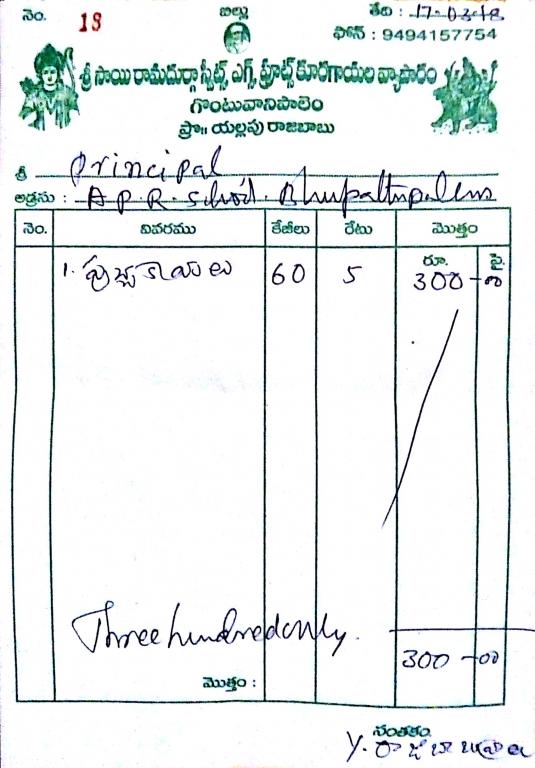 నెం. 18 బిల్లు తేది : 17-03-18
ఫోన్ : 9494157754
శ్రీ సాయి రామదుర్గా స్వీట్స్ ఎగ్స్ ఫ్రూట్స్ కూరగాయల వ్యాపారం
గొంటువానిపాలెం
ప్రొ॥ యల్లపు రాజబాబు
శ్రీ Principal
అడ్రసు : A P R. School. Bhupathipalem
నెం. వివరము కేజీలు రేటు మొత్తం
రూ. పై.
1. పుచ్చకాయలు 60 5 300-00
Three hundred only.
300-00
మొత్తం :
సంతకం
Y. రాజబాబు